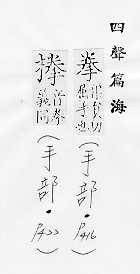 四聲篇海
拳 渠員切 屈手也 (手部•P416)
搼 音拳 義同 (手部•P422)